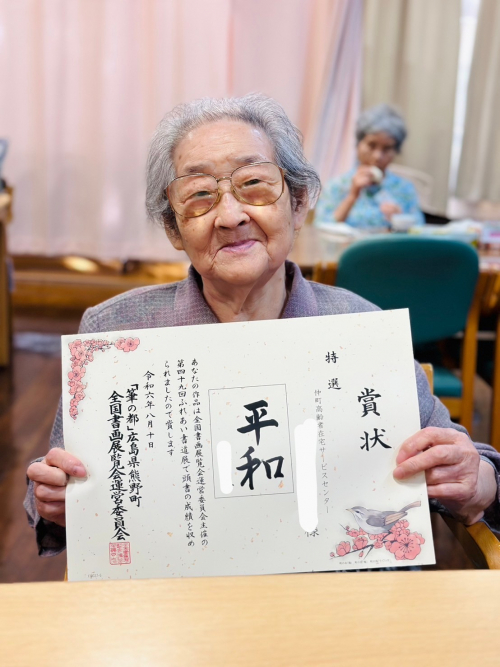 賞状
特選
仲町高齢者在宅サービスセンター
様
平和
あなたの作品は全国書画展覧会運営委員会主催の
第四十九回ふれあい書道展で頭書の成績を収め
られましたので賞します
令和六年八月十日
「筆の都」広島県熊野町
全国書画展覧会運営委員会